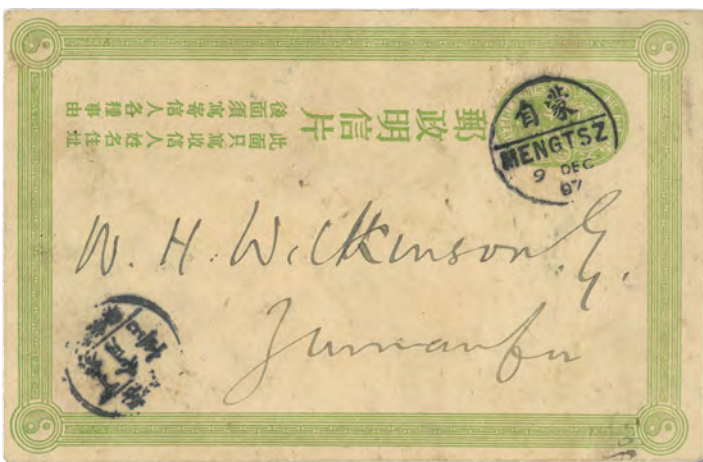 郵政明信片
此面只寫收信人姓名住址
後面須寫寄信人各種事由
蒙自
MENGTSZ
9 DEC
07
W. H. Wilkinson
Yunnanfu